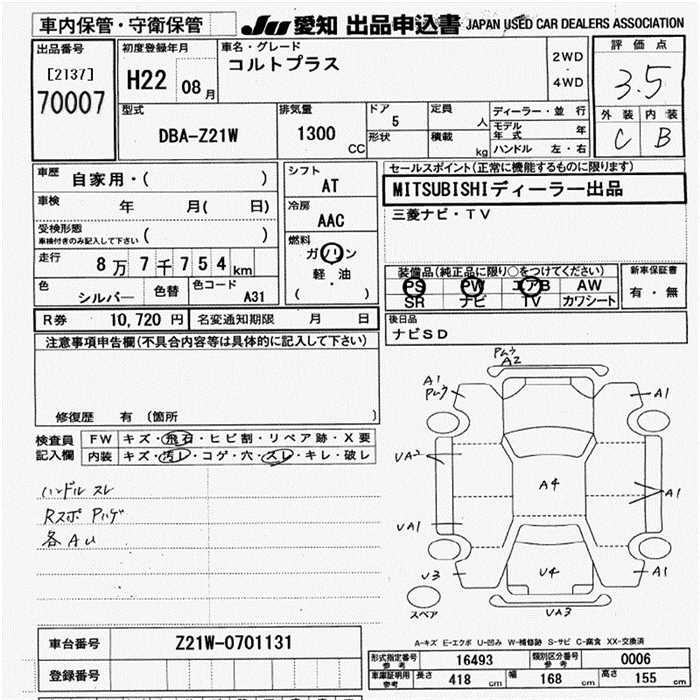 車内保管・守衛保管
JU 愛知 出品申込書 JAPAN USED CAR DEALERS ASSOCIATION
出品番号
[2137]
70007
初度登録年月
H22 08月
車名・グレード
コルトプラス
2WD
・
4WD
評価点
3.5
外装 内装
C B
型式
DBA-Z21W
排気量
1300 CC
ドア
5
形状
定員
人
積載
kg
ディーラー・並行
モデル年式 年
ハンドル 左・右
車歴 自家用・( )
車検 年 月( 日)
受検形態
車検付きのみ記入して下さい ( )
走行 8万7千754km
色 シルバー 色替 色コード A31
シフト
AT
冷房
AAC
燃料
ガソリン
軽・油
( )
セールスポイント(正常に機能するものに限ります)
MITSUBISHIディーラー出品
三菱ナビ・TV
装備品(純正品に限り○をつけてください)
PS PW エアB AW
SR ナビ TV カワシート
新車保証書
有・無
R券 10,720円 名変通知期限 月 日
後日品
ナビSD
注意事項申告欄(不具合内容等は具体的に記入して下さい)
修復歴 有 (箇所 )
検査員記入欄
FW キズ・飛石・ヒビ割・リペア跡・X要
内装 キズ・汚レ・コゲ・穴・スレ・キレ・破レ
ハンドル スレ
Rスポ Pハゲ
各AU
Pムラ
A2
A1
Pムラ
A1
UA2
A4
A1
UA1
U3
U4
A1
UA3
スペア
A-キズ E-エクボ U-凹み W-補修跡 S-サビ C-腐食 XX-交換済
車台番号 Z21W-0701131
登録番号
形式指定番号 参考 16493 類別区分番号 参考 0006
車庫証明用 参考 長さ 418 cm 幅 168 cm 高さ 155 cm